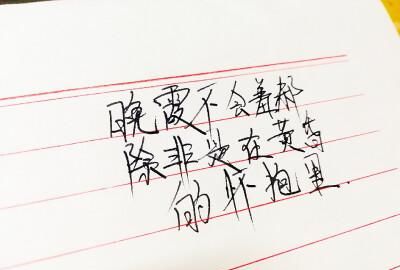 晚霞不会羞
除非是在黄昏
的怀抱里